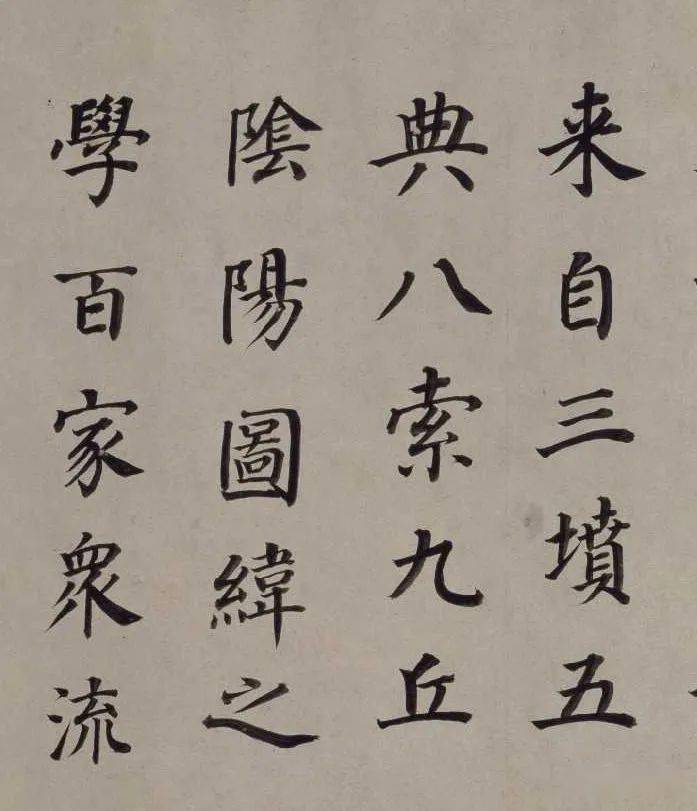 来自三墳五
典八索九丘
陰陽圖緯之
學百家衆流